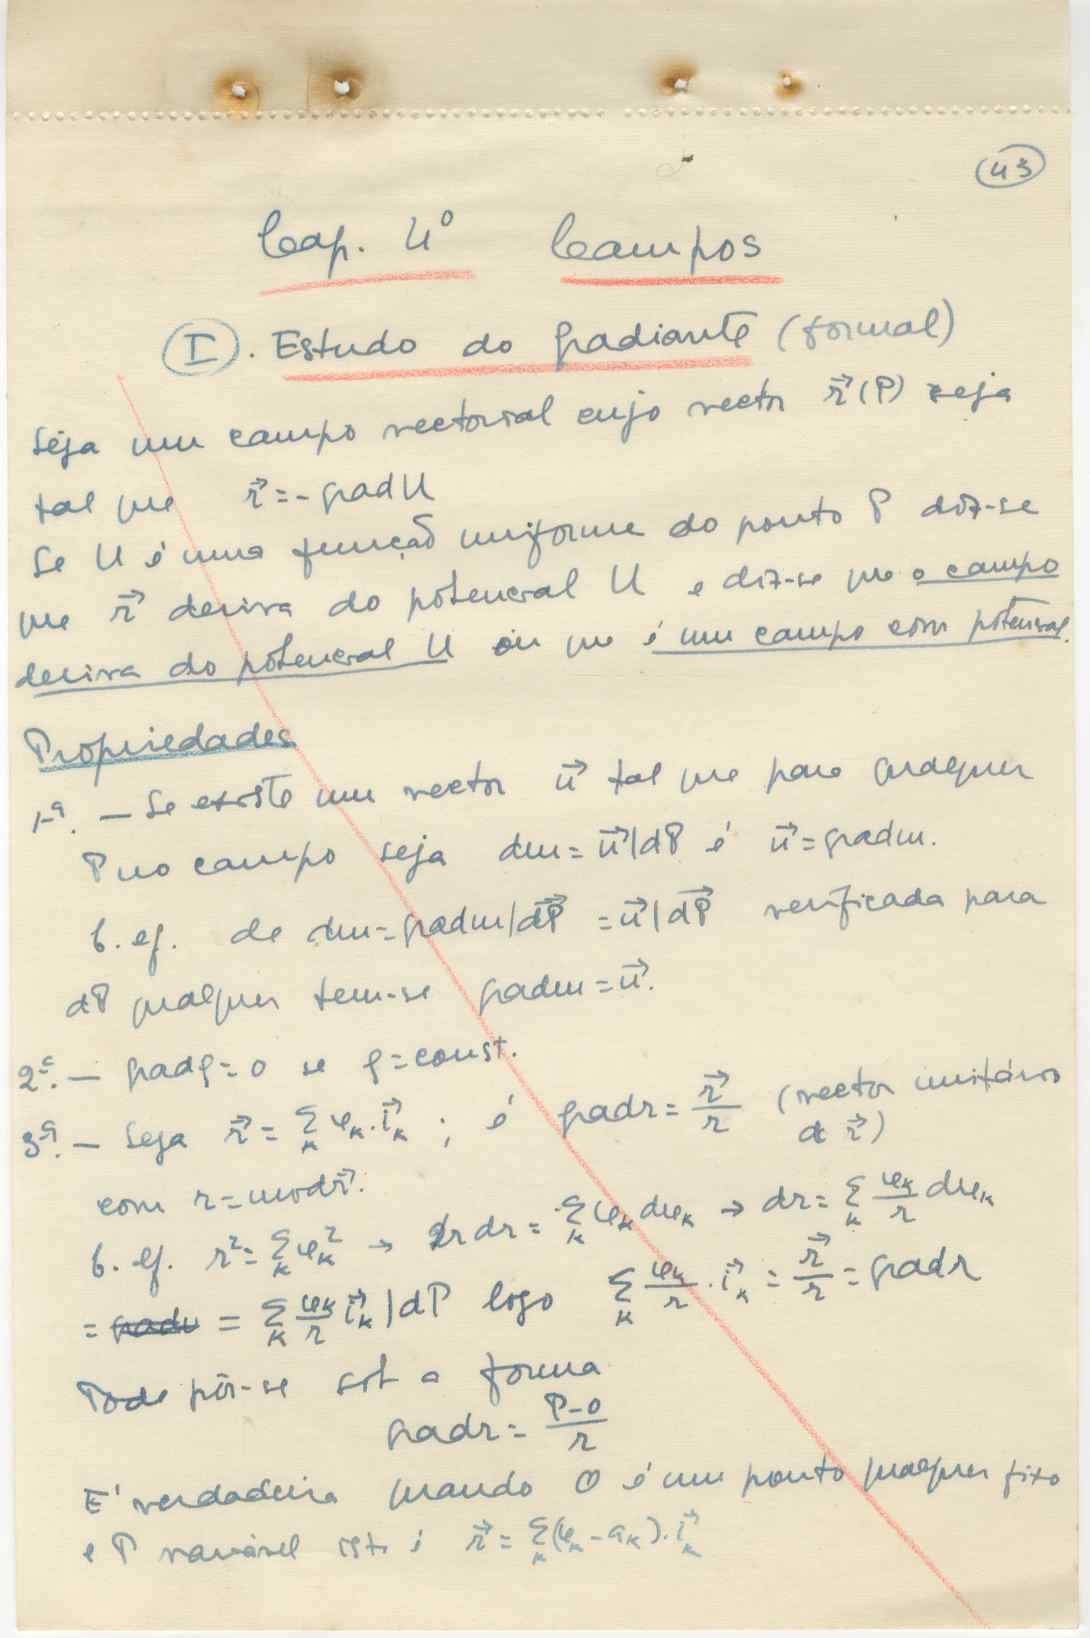 43
Cap. 4º Campos
I. Estudo do gradiante (formal)
Seja um campo vectorial cujo vector r⃗(P) seja
tal que r⃗=-gradU
Se U é uma função uniforme do ponto P diz-se
que r⃗ deriva do potencial U e diz-se que o campo
deriva do potencial U ou que é um campo com potencial.
Propriedades
1ª. — Se existe um vector u⃗ tal que para qualquer
P no campo seja dm=u⃗|dP é u⃗=gradm.
C. ef. de dm=gradm|dP⃗ =u⃗|dP⃗ verificada para
dP qualquer tem-se gradm=u⃗.
2ª. — gradφ=0 se φ=const.
3ª. — Seja r⃗=Σₖ φₖ.i⃗ₖ ; é gradr= r⃗/r (vector unitário
de r⃗)
com r=modr⃗.
C. ef. r²=Σₖ φₖ² → 2r dr= Σₖ φₖ dφₖ → dr= Σₖ φₖ/r dφₖ
= gradr = Σₖ φₖ/r i⃗ₖ|dP logo Σₖ φₖ/r . i⃗ₖ = r⃗/r = gradr
Pode pôr-se sob a forma
gradr= P-O/r
E' verdadeira quando O é um ponto qualquer fixo
e P variável isto é r⃗= Σₖ(φₖ-aₖ).i⃗ₖ